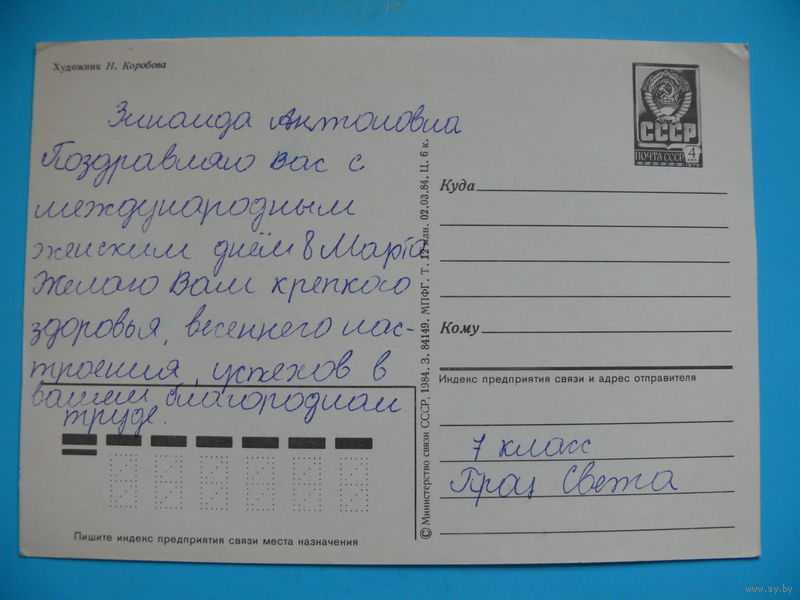 Художник Н. Коробова
Зинаида Антоновна
Поздравляю вас с
международным
женским днём 8 Марта
Желаю Вам крепкого
здоровья, весеннего нас-
троения, успехов в
вашем благородном
труде.
Пишите индекс предприятия связи места назначения
© Министерство связи СССР, 1984. З. 84149. МПФГ. Т. 12 млн. 02.03.84. Ц. 6 к.
СССР
ПОЧТА СССР
4
Куда
Кому
Индекс предприятия связи и адрес отправителя
7 класс
Света
www.ay.by